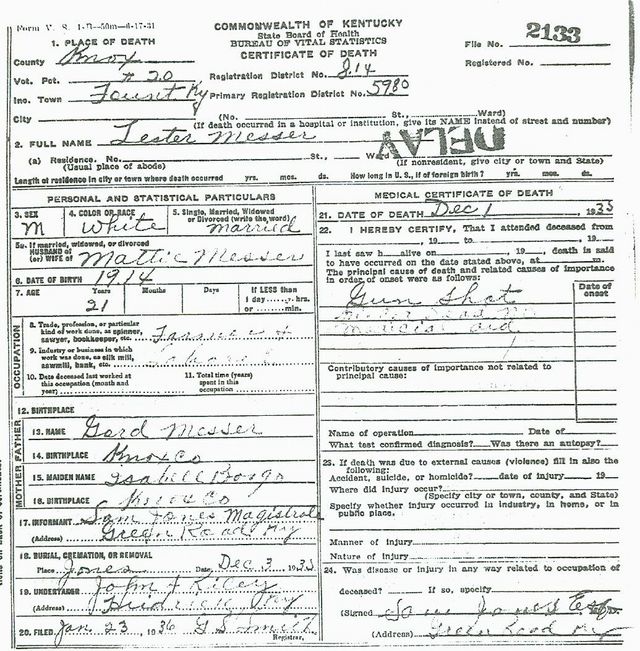 Form V. S. 1-B—50m—6-17-31
COMMONWEALTH OF KENTUCKY
State Board of Health
BUREAU OF VITAL STATISTICS
CERTIFICATE OF DEATH
File No. 2133
Registered No.
1. PLACE OF DEATH
County Knox
Vot. Pct. # 20
Registration District No. 814
Inc. Town Fount Ky
Primary Registration District No. 5980
City (No. St., Ward)
(If death occurred in a hospital or institution, give its NAME instead of street and number)
2. FULL NAME Lester Messer
DELAY
(a) Residence. No. St., Ward
(Usual place of abode) (If nonresident, give city or town and State)
Length of residence in city or town where death occurred yrs. mos. ds. How long in U. S., if of foreign birth? yrs. mos. ds.
PERSONAL AND STATISTICAL PARTICULARS
3. SEX 4. COLOR OR RACE 5. Single, Married, Widowed
or Divorced (write the word)
M White Married
5a. If married, widowed, or divorced
HUSBAND of
(or) WIFE of Mattie Messer
6. DATE OF BIRTH 1914
7. AGE Years Months Days If LESS than
1 day hrs.
or min.
21
OCCUPATION
8. Trade, profession, or particular
kind of work done, as spinner,
sawyer, bookkeeper, etc.
9. Industry or business in which
work was done, as silk mill,
sawmill, bank, etc.
10. Date deceased last worked at
this occupation (month and
year)
11. Total time (years)
spent in this
occupation
12. BIRTHPLACE
FATHER
13. NAME Gard Messer
14. BIRTHPLACE Knox Co
MOTHER
15. MAIDEN NAME Isabell
16. BIRTHPLACE Knox Co
17. INFORMANT Sam Jones Magistrate
(Address) Green Road Ky
18. BURIAL, CREMATION, OR REMOVAL
Place Jones Date Dec 3 1935
19. UNDERTAKER John J Riley
(Address) Ky
20. FILED Jan 23, 1936 G S Smith
Registrar.
MEDICAL CERTIFICATE OF DEATH
21. DATE OF DEATH Dec 1 1935
22. I HEREBY CERTIFY, That I attended deceased from
, 19 to , 19
I last saw h alive on , 19 , death is said
to have occurred on the date stated above, at m.
The principal cause of death and related causes of importance
in order of onset were as follows:
Date of
onset
Gun Shot
Medical aid
Contributory causes of importance not related to
principal cause:
Name of operation Date of
What test confirmed diagnosis? Was there an autopsy?
23. If death was due to external causes (violence) fill in also the
following:
Accident, suicide, or homicide? date of injury 19
Where did injury occur?
(Specify city or town, county, and State)
Specify whether injury occurred in industry, in home, or in
public place.
Manner of injury
Nature of injury
24. Was disease or injury in any way related to occupation of
deceased? If so, specify
(Signed Sam Jones
(Address) Green Road Ky